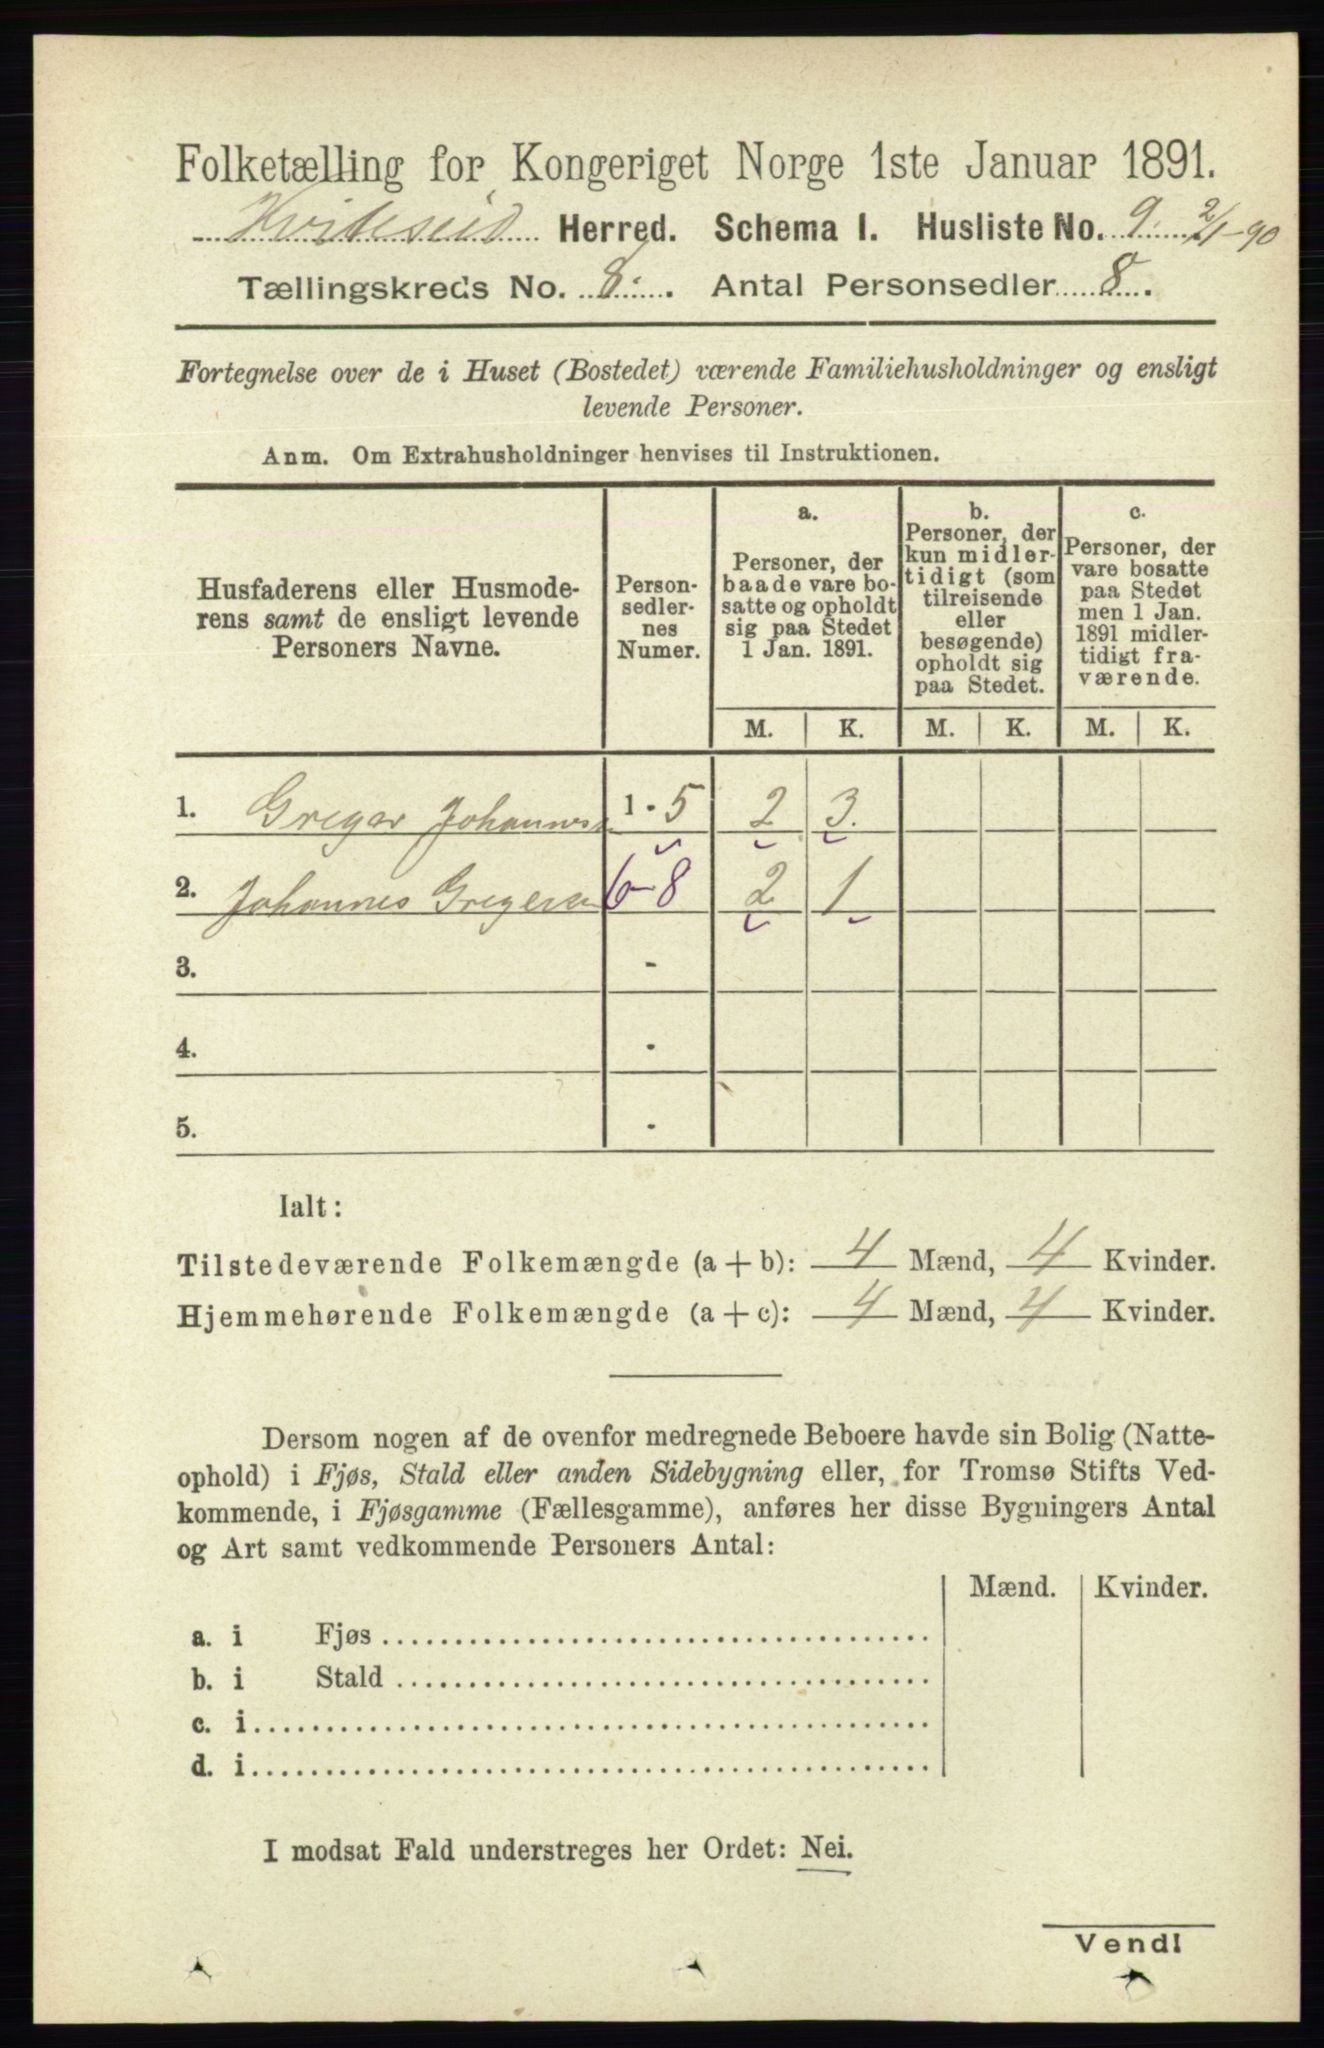 Folketælling for Kongeriget Norge 1ste Januar 1891.
Hvideseid Herred. Schema I. Husliste No. 9. 2/1-90
Tællingskreds No. 8. Antal Personsedler 8.
Fortegnelse over de i Huset (Bostedet) værende Familiehusholdninger og ensligt
levende Personer.
Anm. Om Extrahusholdninger henvises til Instruktionen.
Husfaderens eller Husmode-
rens samt de ensligt levende
Personers Navne.
Person-
sedler-
nes
Numer.
a.
Personer, der
baade vare bo-
satte og opholdt
sig paa Stedet
1 Jan. 1891.
b.
Personer, der
kun midler-
tidigt (som
tilreisende
eller
besøgende)
opholdt sig
paa Stedet.
c.
Personer, der
vare bosatte
paa Stedet
men 1 Jan.
1891 midler-
tidigt fra-
værende.
M. K. M. K. M. K.
1. Greger Johannes 1 - 5 2 3.
2. Johannes Gregersen 6-8 2 1
3. -
4. -
5. -
Ialt:
Tilstedeværende Folkemængde (a + b): 4 Mænd, 4 Kvinder.
Hjemmehørende Folkemængde (a + c): 4 Mænd, 4 Kvinder.
Dersom nogen af de ovenfor medregnede Beboere havde sin Bolig (Natte-
ophold) i Fjøs, Stald eller anden Sidebygning eller, for Tromsø Stifts Ved-
kommende, i Fjøsgamme (Fællesgamme), anføres her disse Bygningers Antal
og Art samt vedkommende Personers Antal:
Mænd. Kvinder.
a. i Fjøs
b. i Stald
c. i
d. i
I modsat Fald understreges her Ordet: Nei.
Vend!